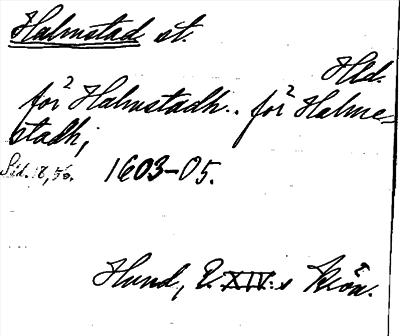 Halmstad st.
Hld.
för² Halmstadh.. för² Halme-
stadh;
Sid. 8,56. 1603-05.
Hund, E. XIV:s krön.